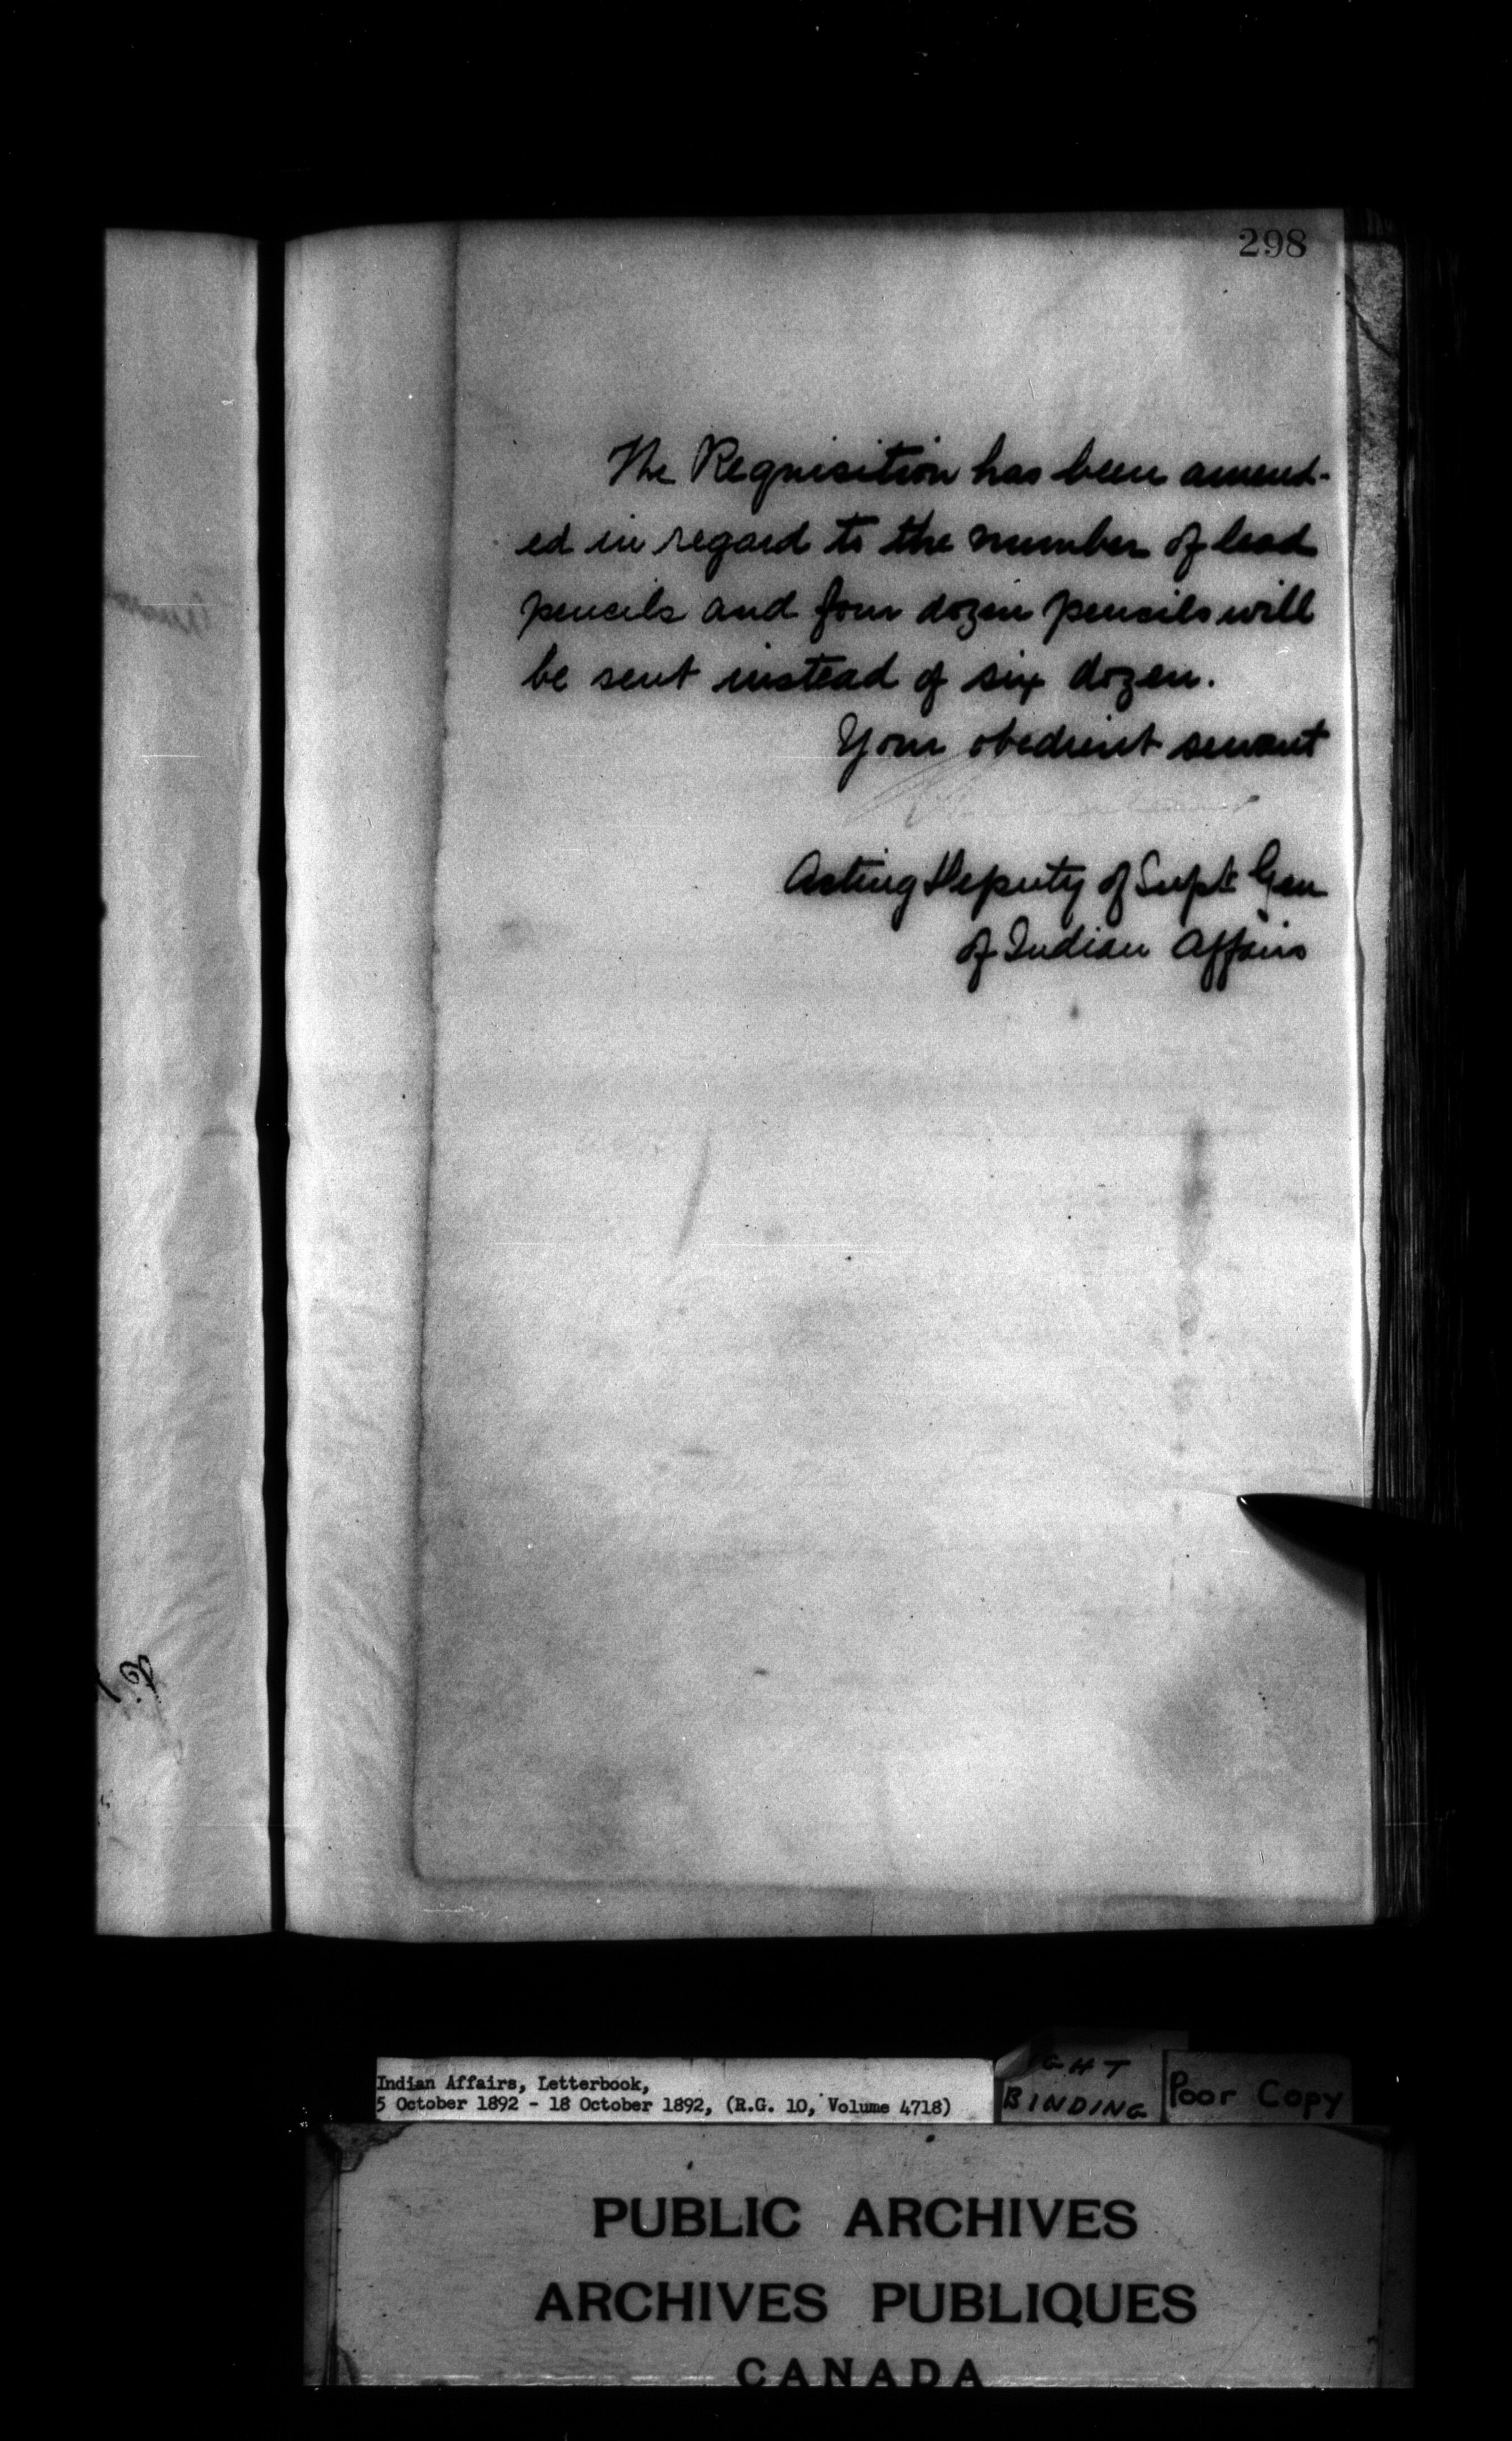 298
The Requisition has been amend-
ed in regard to the number of lead
pencils and four dozen pencils will
be sent instead of six dozen.
Your obedient servant
Acting Deputy of Supt Gen
of Indian Affairs
Indian Affairs, Letterbook,
5 October 1892 - 18 October 1892, (R.G. 10, Volume 4718)
GHT
BINDING
Poor Copy
PUBLIC ARCHIVES
ARCHIVES PUBLIQUES
CANADA